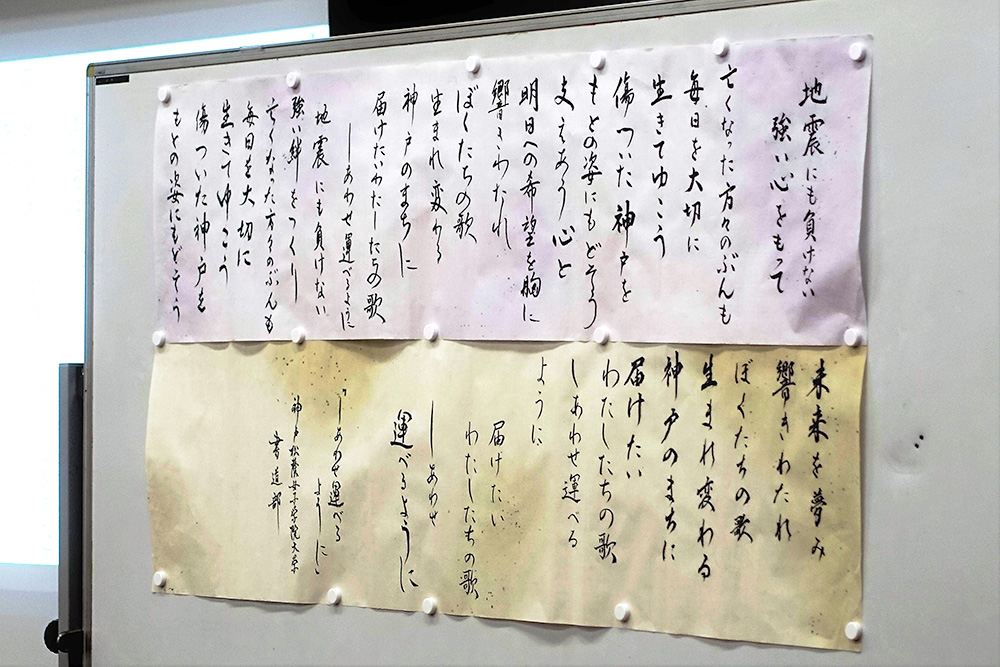 地震にも負けない
強い心をもって
亡くなった方々のぶんも
毎日を大切に
生きてゆこう
傷ついた神戸を
もとの姿にもどそう
支えあう心と
明日への希望を胸に
響きわたれ
ぼくたちの歌
生まれ変わる
神戸のまちに
届けたいわたしたちの歌
しあわせ運べるように
地震にも負けない
強い絆をつくり
亡くなった方々のぶんも
毎日を大切に
生きてゆこう
傷ついた神戸を
もとの姿にもどそう
未来を夢み
響きわたれ
ぼくたちの歌
生まれ変わる
神戸のまちに
届けたい
わたしたちの歌
しあわせ運べる
ように
届けたい
わたしたちの歌
しあわせ
運べるように
「しあわせ運べる
ように」
神戸松蔭女子学院大学
書道部